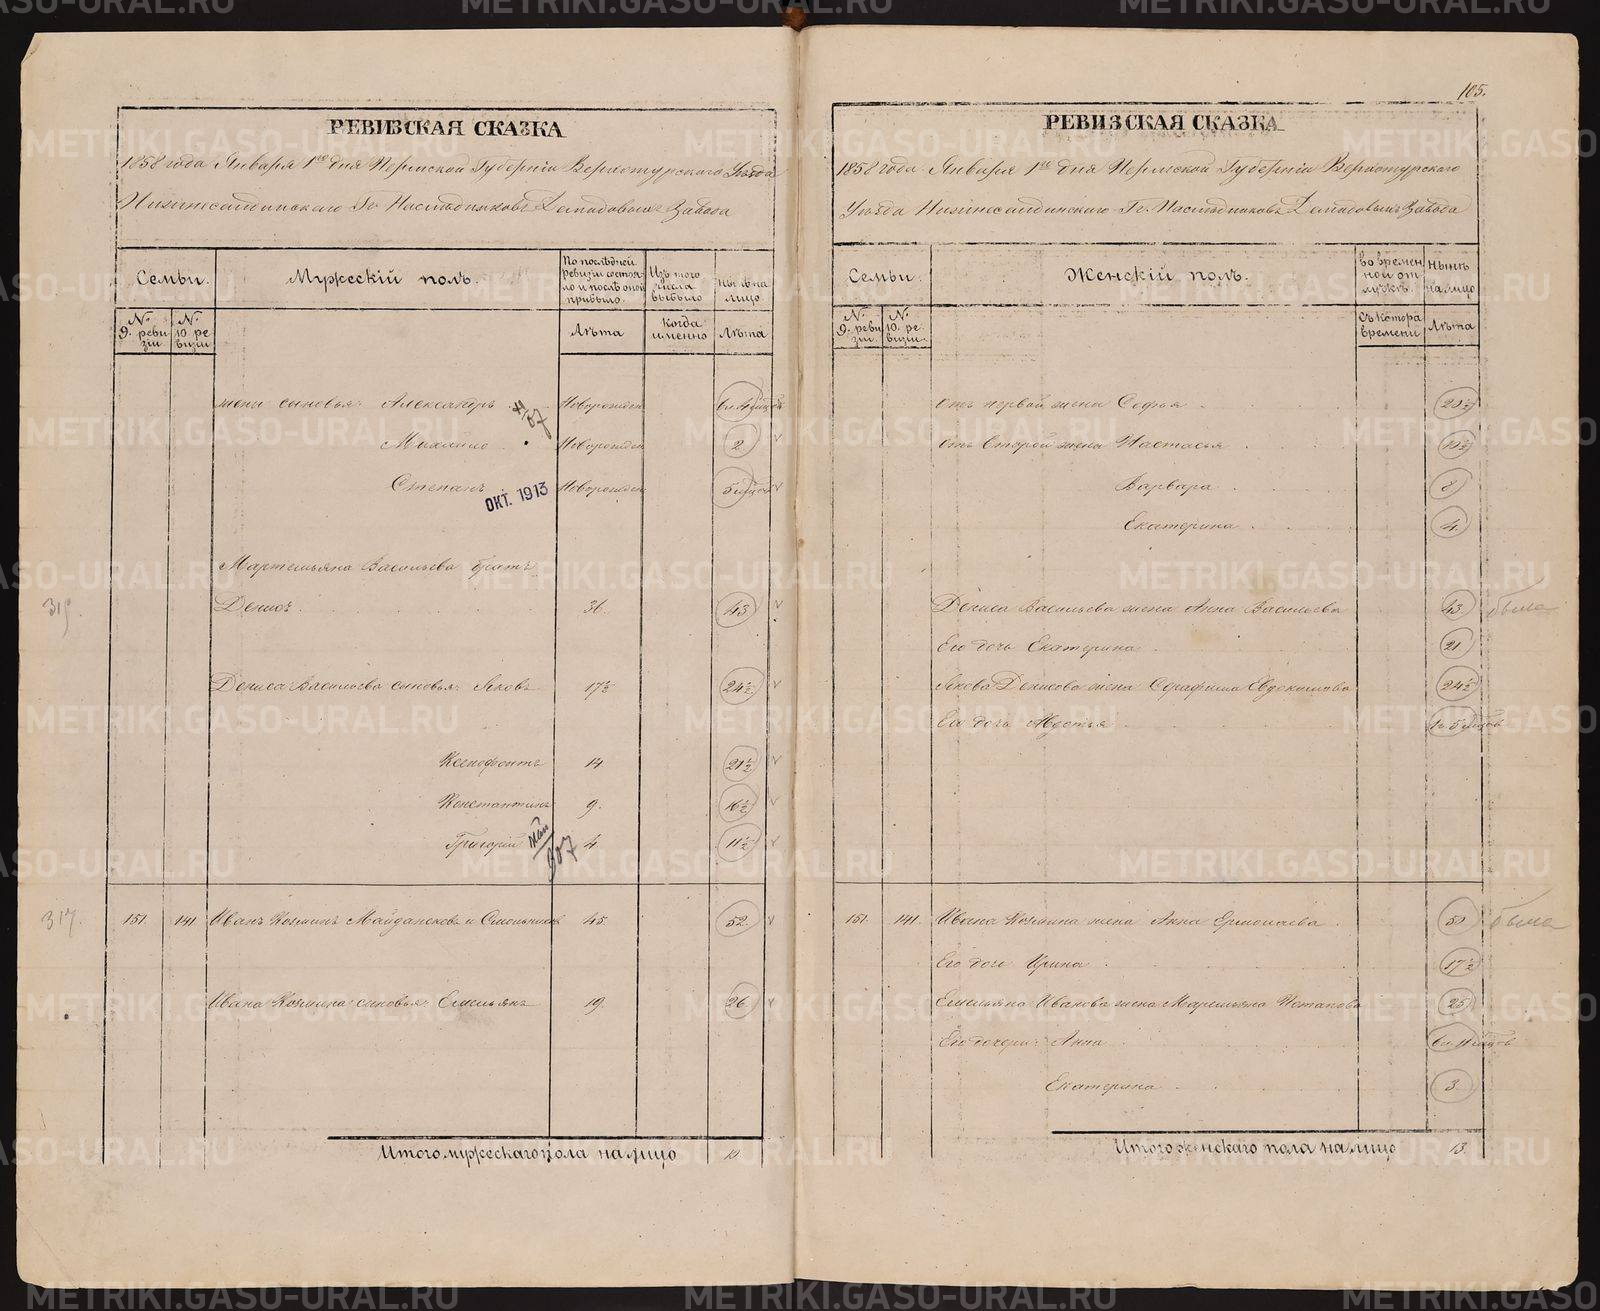 РЕВИЗСКАЯ СКАЗКА
1858 года Января 1го дня Пермской Губерніи Верхотурскаго Уѣзда
Нижнесалдинскаго Гг. Наслѣдниковъ Демидовыхъ Завода
Семьи.
Мужескій полъ.
По послѣдней ревизіи состояло и послѣ оной прибыло.
Изъ того числа выбыло
Нынѣ на лицо
№ 9. ревизіи.
№ 10. ревизіи.
Лѣта
когда именно
Лѣта
жены сыновья: Александръ Новорожден
Михайло Новорожден 2
Степанъ Новорожден 5 мѣсцовъ
ОКТ. 1913
Мартемьяна Васильева братъ
Денисъ. 36. 43
Дениса Васильева сыновья: Яковъ 17½ 24½
Ксенофонтъ 14 21½
Константинъ 9. 16½
Григорій 4 11½
май 907
317. 151. 141. Иванъ Козминъ Майданскова и Смольников 45. 52.
Ивана Козмина сыновья: Емельянъ 19. 26
Итого мужескаго пола на лицо 10
105.
РЕВИЗСКАЯ СКАЗКА
1858 года Января 1го дня Пермской Губерніи Верхотурскаго
Уѣзда Нижнесалдинскаго Гг. Наслѣдниковъ Демидовыхъ Завода
Семьи.
Женскій полъ.
во временной отлучкѣ.
Нынѣ на лицо
№ 9. ревизіи.
№ 10. ревизіи.
Съ котора времени
Лѣта
отъ первой жены Софья
отъ второй жены Настасья
Варвара 8
Екатерина 4.
Дениса Васильева жена Анна Васильева 43 была
Его дочь Екатерина 21
Якова Денисова жена Серафима Евдокимова 24½
Его дочь
151. 141. Ивана Козмина жена Анна Ермолаева была
Его дочь Ирина 17½
Емельяна Иванова жена Маремьяна Потапова 25
Его дочери: Анна
Екатерина 3
Итого женскаго пола на лицо 13.
METRIKI.GASO-URAL.RU